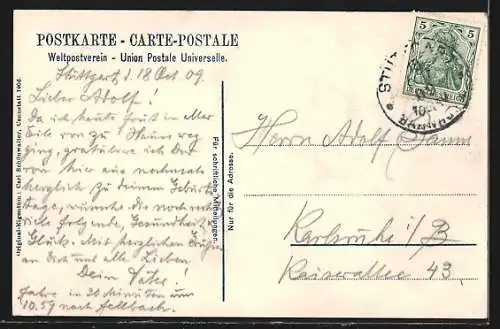 POSTKARTE - CARTE-POSTALE
Weltpostverein - Union Postale Universelle.
Stuttgart, d. 18 Oct 09.
Lieber Adolf!
Da ich heute früh in aller
Eile von zu Haus weg
ging, gratuliere ich Dir
von hier aus nochmals
herzlich zu Deinem Geburts-
tage, wünsche Dir noch recht
viele folgende, Gesundheit,
Glück. Mit herzlichen Grüßen
an Dich und alle Lieben
Dein Vater!
Fahre in 30 Minuten um
10.59 nach Fellbach.
Original-Eigentum: Carl Schönwalter, Cannstatt 1906.
Für schriftliche Mitteilungen.
Nur für die Adresse.
5 5
Herrn Adolf
Karlsruhe i/B
Kaiserallee 43.